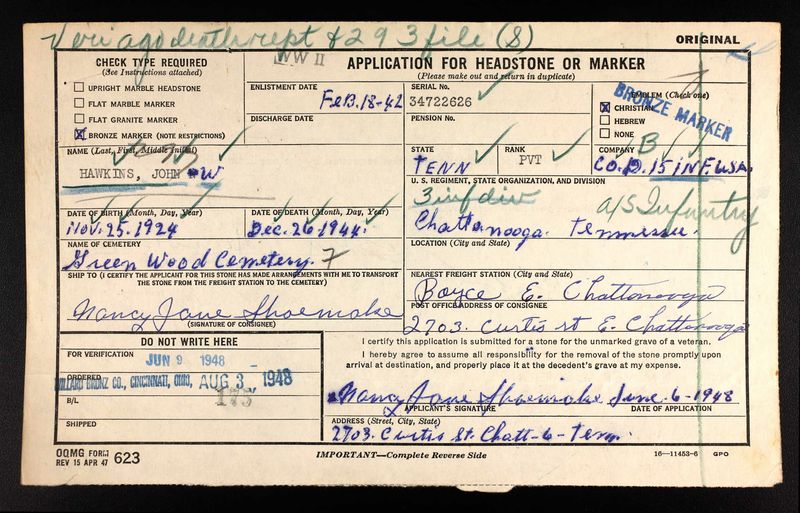 ORIGINAL
WW II
CHECK TYPE REQUIRED
(See Instructions attached)
UPRIGHT MARBLE HEADSTONE
FLAT MARBLE MARKER
FLAT GRANITE MARKER
BRONZE MARKER (NOTE RESTRICTIONS)
APPLICATION FOR HEADSTONE OR MARKER
(Please make out and return in duplicate)
ENLISTMENT DATE
FeB.18-42
DISCHARGE DATE
SERIAL No.
34722626
PENSION No.
EMBLEM (Check one)
CHRISTIAN
HEBREW
NONE
BRONZE MARKER
NAME (Last, First, Middle Initial)
HAWKINS, JOHN W
STATE
TENN
RANK
PVT
COMPANY
B
Co.D.15 INF. USA.
U. S. REGIMENT, STATE ORGANIZATION, AND DIVISION
3 inf div
a/S Infantry
DATE OF BIRTH (Month, Day, Year)
Nov.25.1924
DATE OF DEATH (Month, Day, Year)
Dec.26 1944.
Chattanooga. Tennessee.
NAME OF CEMETERY
Green Wood Cemetery. 7
LOCATION (City and State)
SHIP TO (I CERTIFY THE APPLICANT FOR THIS STONE HAS MADE ARRANGEMENTS WITH ME TO TRANSPORT
THE STONE FROM THE FREIGHT STATION TO THE CEMETERY)
NEAREST FREIGHT STATION (City and State)
Boyce E. Chattanooga
Nancy Jane Shoemake
(SIGNATURE OF CONSIGNEE)
POST OFFICE ADDRESS OF CONSIGNEE
2703. Curtis st E. Chattanooga
DO NOT WRITE HERE
FOR VERIFICATION
JUN 9 1948
ORDERED
HILLARD BRONZ CO., CINCINNATI, OHIO, AUG 3 1948
175
B/L
SHIPPED
I certify this application is submitted for a stone for the unmarked grave of a veteran.
I hereby agree to assume all responsibility for the removal of the stone promptly upon
arrival at destination, and properly place it at the decedent's grave at my expense.
Nancy Jane Shoemake June.6-1948
APPLICANT'S SIGNATURE
DATE OF APPLICATION
ADDRESS (Street, City, State)
2703. Curtis St. Chatt-6-Tenn.
OQMG FORM
REV 15 APR 47
623
IMPORTANT—Complete Reverse Side
16—11453-6 GPO